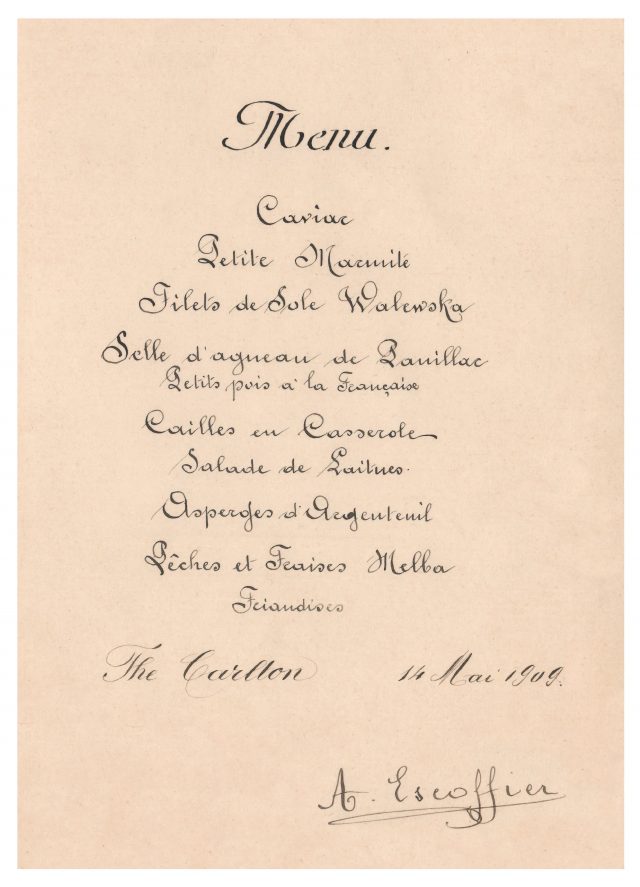 Menu.
Caviar
Petite Marmite
Filets de Sole Walewska
Selle d'agneau de Pauillac
Petits pois à la Française
Cailles en Casserole
Salade de Laitues.
Asperges d'Argenteuil
Pêches et Fraises Melba
Friandises
The Carlton 14 Mai 1909.
A. Escoffier